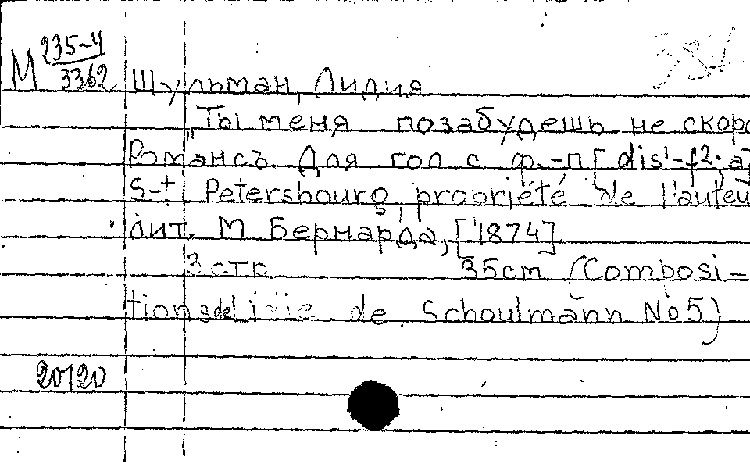 М 235-4/3362
Шульман, Лидия
„Ты меня позабудешь не скоро
Романсъ. Для гол с ф.-п [dis¹-f²; a]
S-t Petersbourg, propriété de l'auteu
лит. М Бернарда, [1874]
3 стр. 35cm (Composi-
tions de Lidie de Schoulmann No5)
20/20